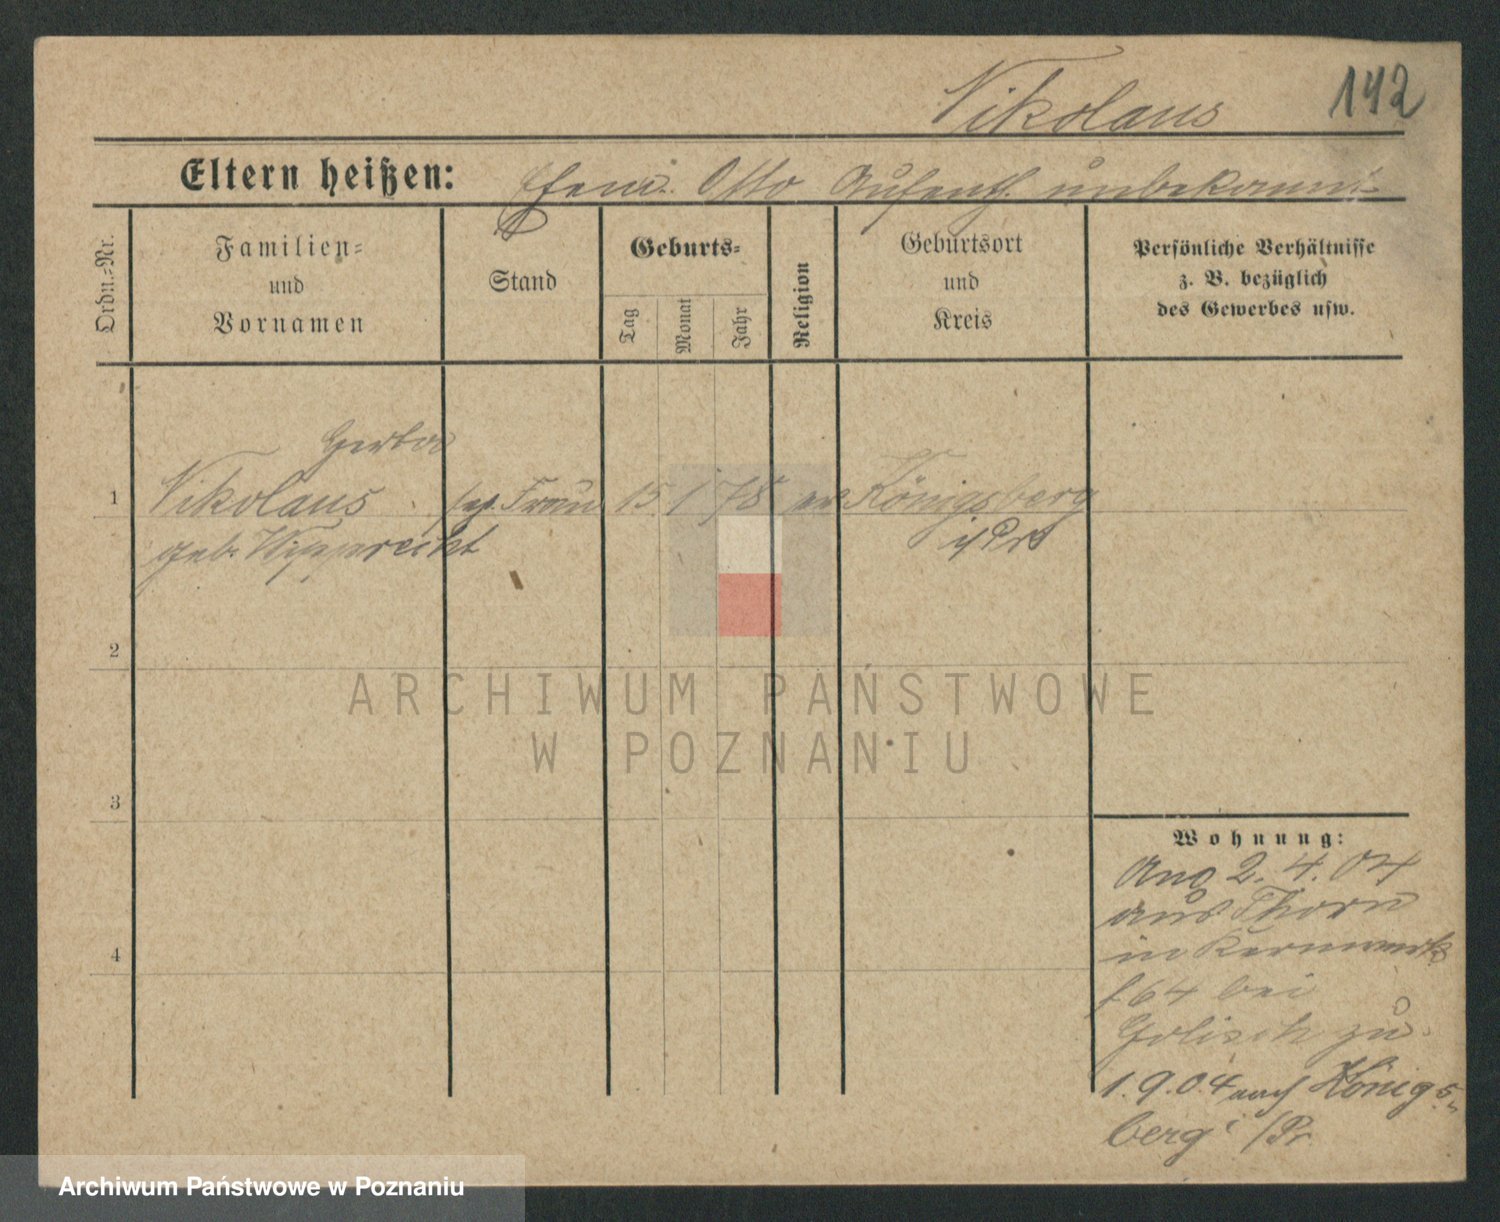 Nikolaus 142
Eltern heißen: Ehem. Otto Aufenth. unbekannt
Ordn.-Nr.
Familien-
und
Vornamen
Stand
Geburts-
Tag
Monat
Jahr
Religion
Geburtsort
und
Kreis
Persönliche Verhältnisse
z. B. bezüglich
des Gewerbes usw.
1 Nikolaus sep. Frau 15 1 78 ev Königsberg
geb. Wipprecht i/Pr
2
3
4
Wohnung:
Ang 2.4.04
aus Thorn
in Kernwerk
f 64 bei
Golisch zu.
1.9.04 nach Königs-
berg i/Pr.
ARCHIWUM PAŃSTWOWE
W POZNANIU
Archiwum Państwowe w Poznaniu